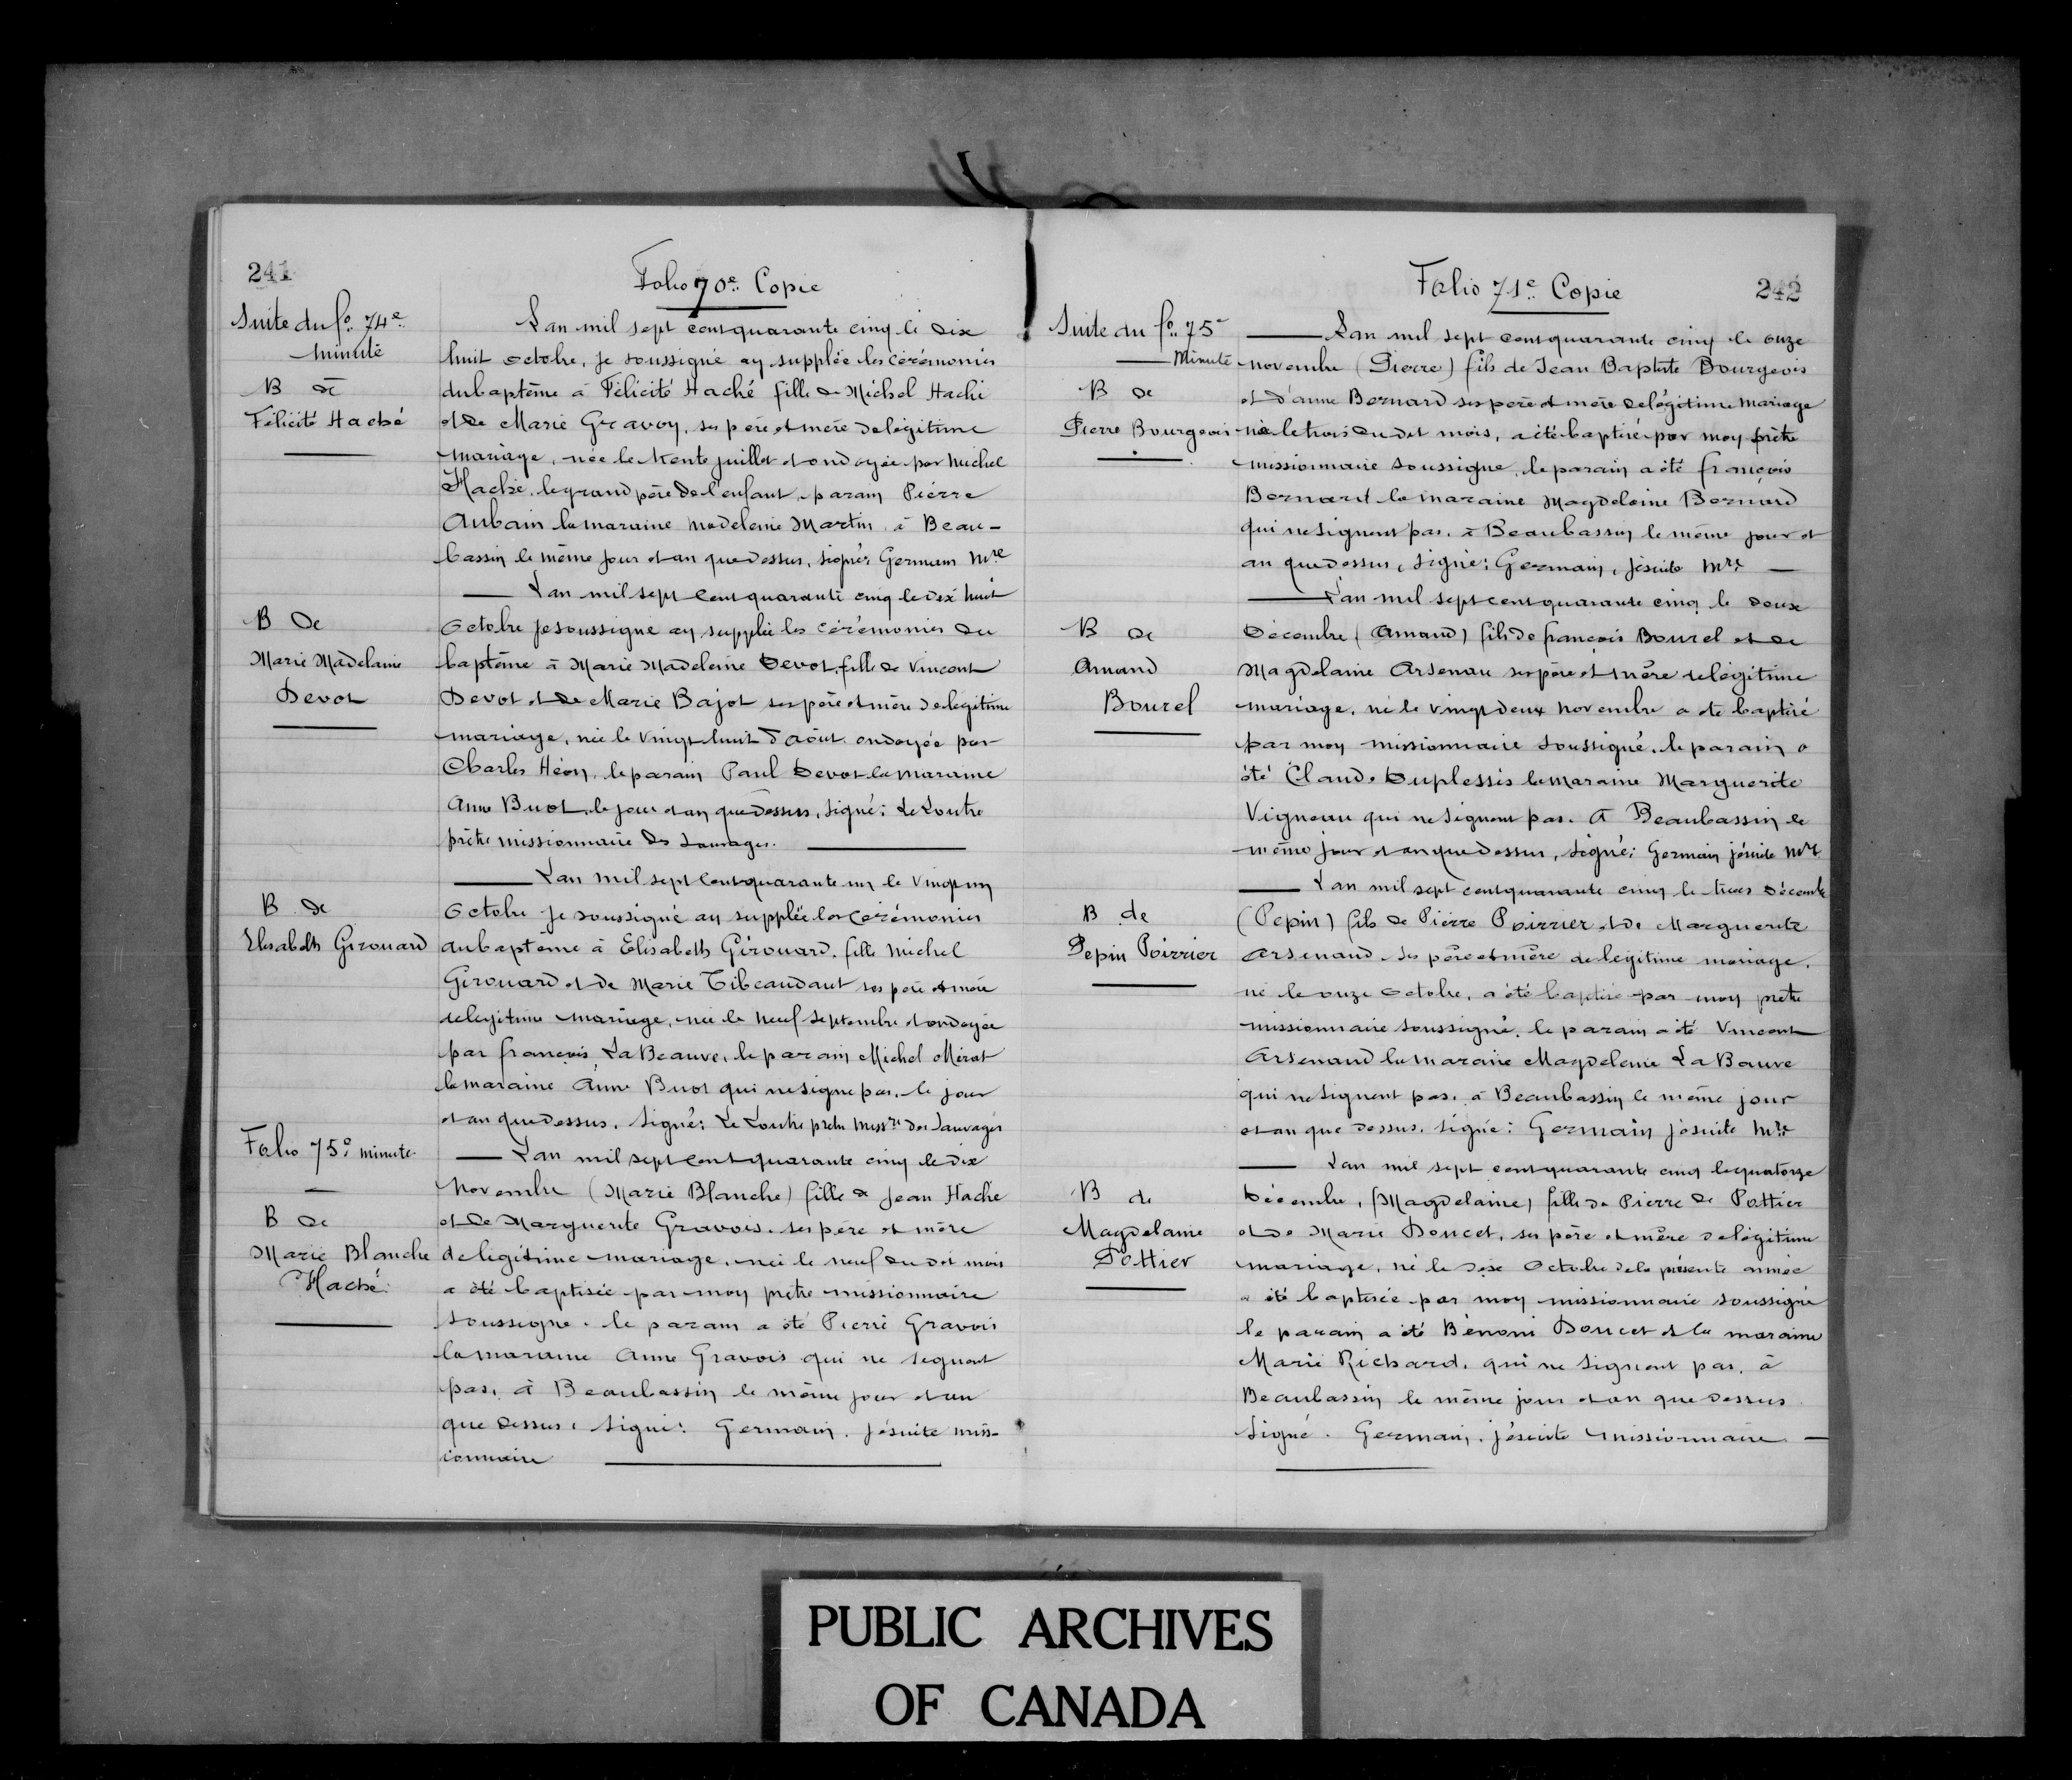 241
Folio 70e Copie
Suite du fo. 74e
minute
B de
Félicité Haché
Lan mil sept cent quarante cinq le dix
huit octobre, je soussigné ay supplée les cérémonies
du baptême à Félicité Haché fille de Michel Haché
et de Marie Gravoy, ses père et mère de légitime
mariage, née le trente juillet et ondoyée par Michel
Haché, le grand père de l'enfant, parain Pierre
Aubain la maraine Madeleine Martin à Beau-
bassin le même jour et an que dessus, signé: Germain Mre
Lan mil sept cent quarante cinq le dix huit
B de
Marie Madelaine
Devot
octobre je soussigné ay supplée les cérémonies du
baptême à Marie Madeleine Devot, fille de Vincent
Devot et de Marie Bajot ses père et mère de légitime
mariage, née le vingt huit d'août ondoyée par
Charles Héon, le parain Paul Devot la maraine
Anne Buot, le jour et an que dessus, signé: Le Loutre
prêtre missionnaire des sauvages.
Lan mil sept cent quarante un le vingt un
B de
Elisabeth Girouard
octobre je soussigné ay supplée les cérémonies
du baptême à Elisabeth Girouard, fille Michel
Girouard et de Marie Tibeaudaut ses père et mère
de legitime mariage, née le neuf septembre et ondoyée
par françois La Beauve, le parain Michel Mirat
la maraine Anne Buot qui ne signe pas, le jour
et an que dessus, Signé: Le Loutre pretre missre des Sauvages
Folio 75e minute
B de
Marie Blanche
Haché
Lan mil sept cent quarante cinq le dix
novembre (Marie Blanche) fille de Jean Haché
et de Marguerite Gravois, ses père et mère
de légitime mariage, née le neuf du dit mois
a été baptisée par moy prêtre missionnaire
soussigné. le parain a été Pierre Gravois
la maraine Anne Gravois qui ne signent
pas, à Beaubassin le même jour et an
que dessus, signé: Germain, Jésuite miss-
ionnaire
Folio 71e Copie
242
Suite du fo. 75e
Minute
B de
Pierre Bourgeois
Lan mil sept cent quarante cinq le onze
novembre (Pierre) fils de Jean Baptiste Bourgeois
et d'anne Bernard ses père et mère de légitime mariage
né le trois du dit mois, a été baptisé par moy prêtre
missionnaire soussigné, le parain a été françois
Bernard la maraine Magdeleine Bernard
qui ne signent pas, à Beaubassin le même jour et
an que dessus, Signé: Germain, jésuite Mre
Lan mil sept cent quarante cinq le douze
B de
Amand
Bourel
décembre (Amand) fils de françois Bourel et de
Magdelaine Arsenau ses père et mère de légitime
mariage, né le vingt deux novembre a été baptisé
par moy missionnaire soussigné, le parain a
été Claude Duplessis la maraine Marguerite
Vigneau qui ne signent pas. à Beaubassin le
même jour et an que dessus, Signé: Germain jésuite Mre
Lan mil sept cent quarante cinq le treize décembre
B de
Pepin Poirrier
(Pepin) fils de Pierre Poirrier et de Marguerite
Arsenaud, ses père et mère de légitime mariage,
né le onze octobre, a été baptisé par moy prêtre
missionnaire soussigné, le parain a été Vincent
Arsenaud la maraine Magdeleine La Bauve
qui ne signent pas, à Beaubassin le même jour
et an que dessus, Signé: Germain jésuite Mre
Lan mil sept cent quarante cinq le quatorze
B de
Magdelaine
Pottier
décembre, (Magdelaine) fille de Pierre de Pottier
et de Marie Doucet, ses père et mère de légitime
mariage, né le dix octobre de la présente année
a été baptisée par moy missionnaire soussigné
le parain a été Bénoni Doucet et la maraine
Marie Richard, qui ne signent pas, à
Beaubassin le même jour et an que dessus
Signé. Germain, jésuite missionnaire
PUBLIC ARCHIVES
OF CANADA